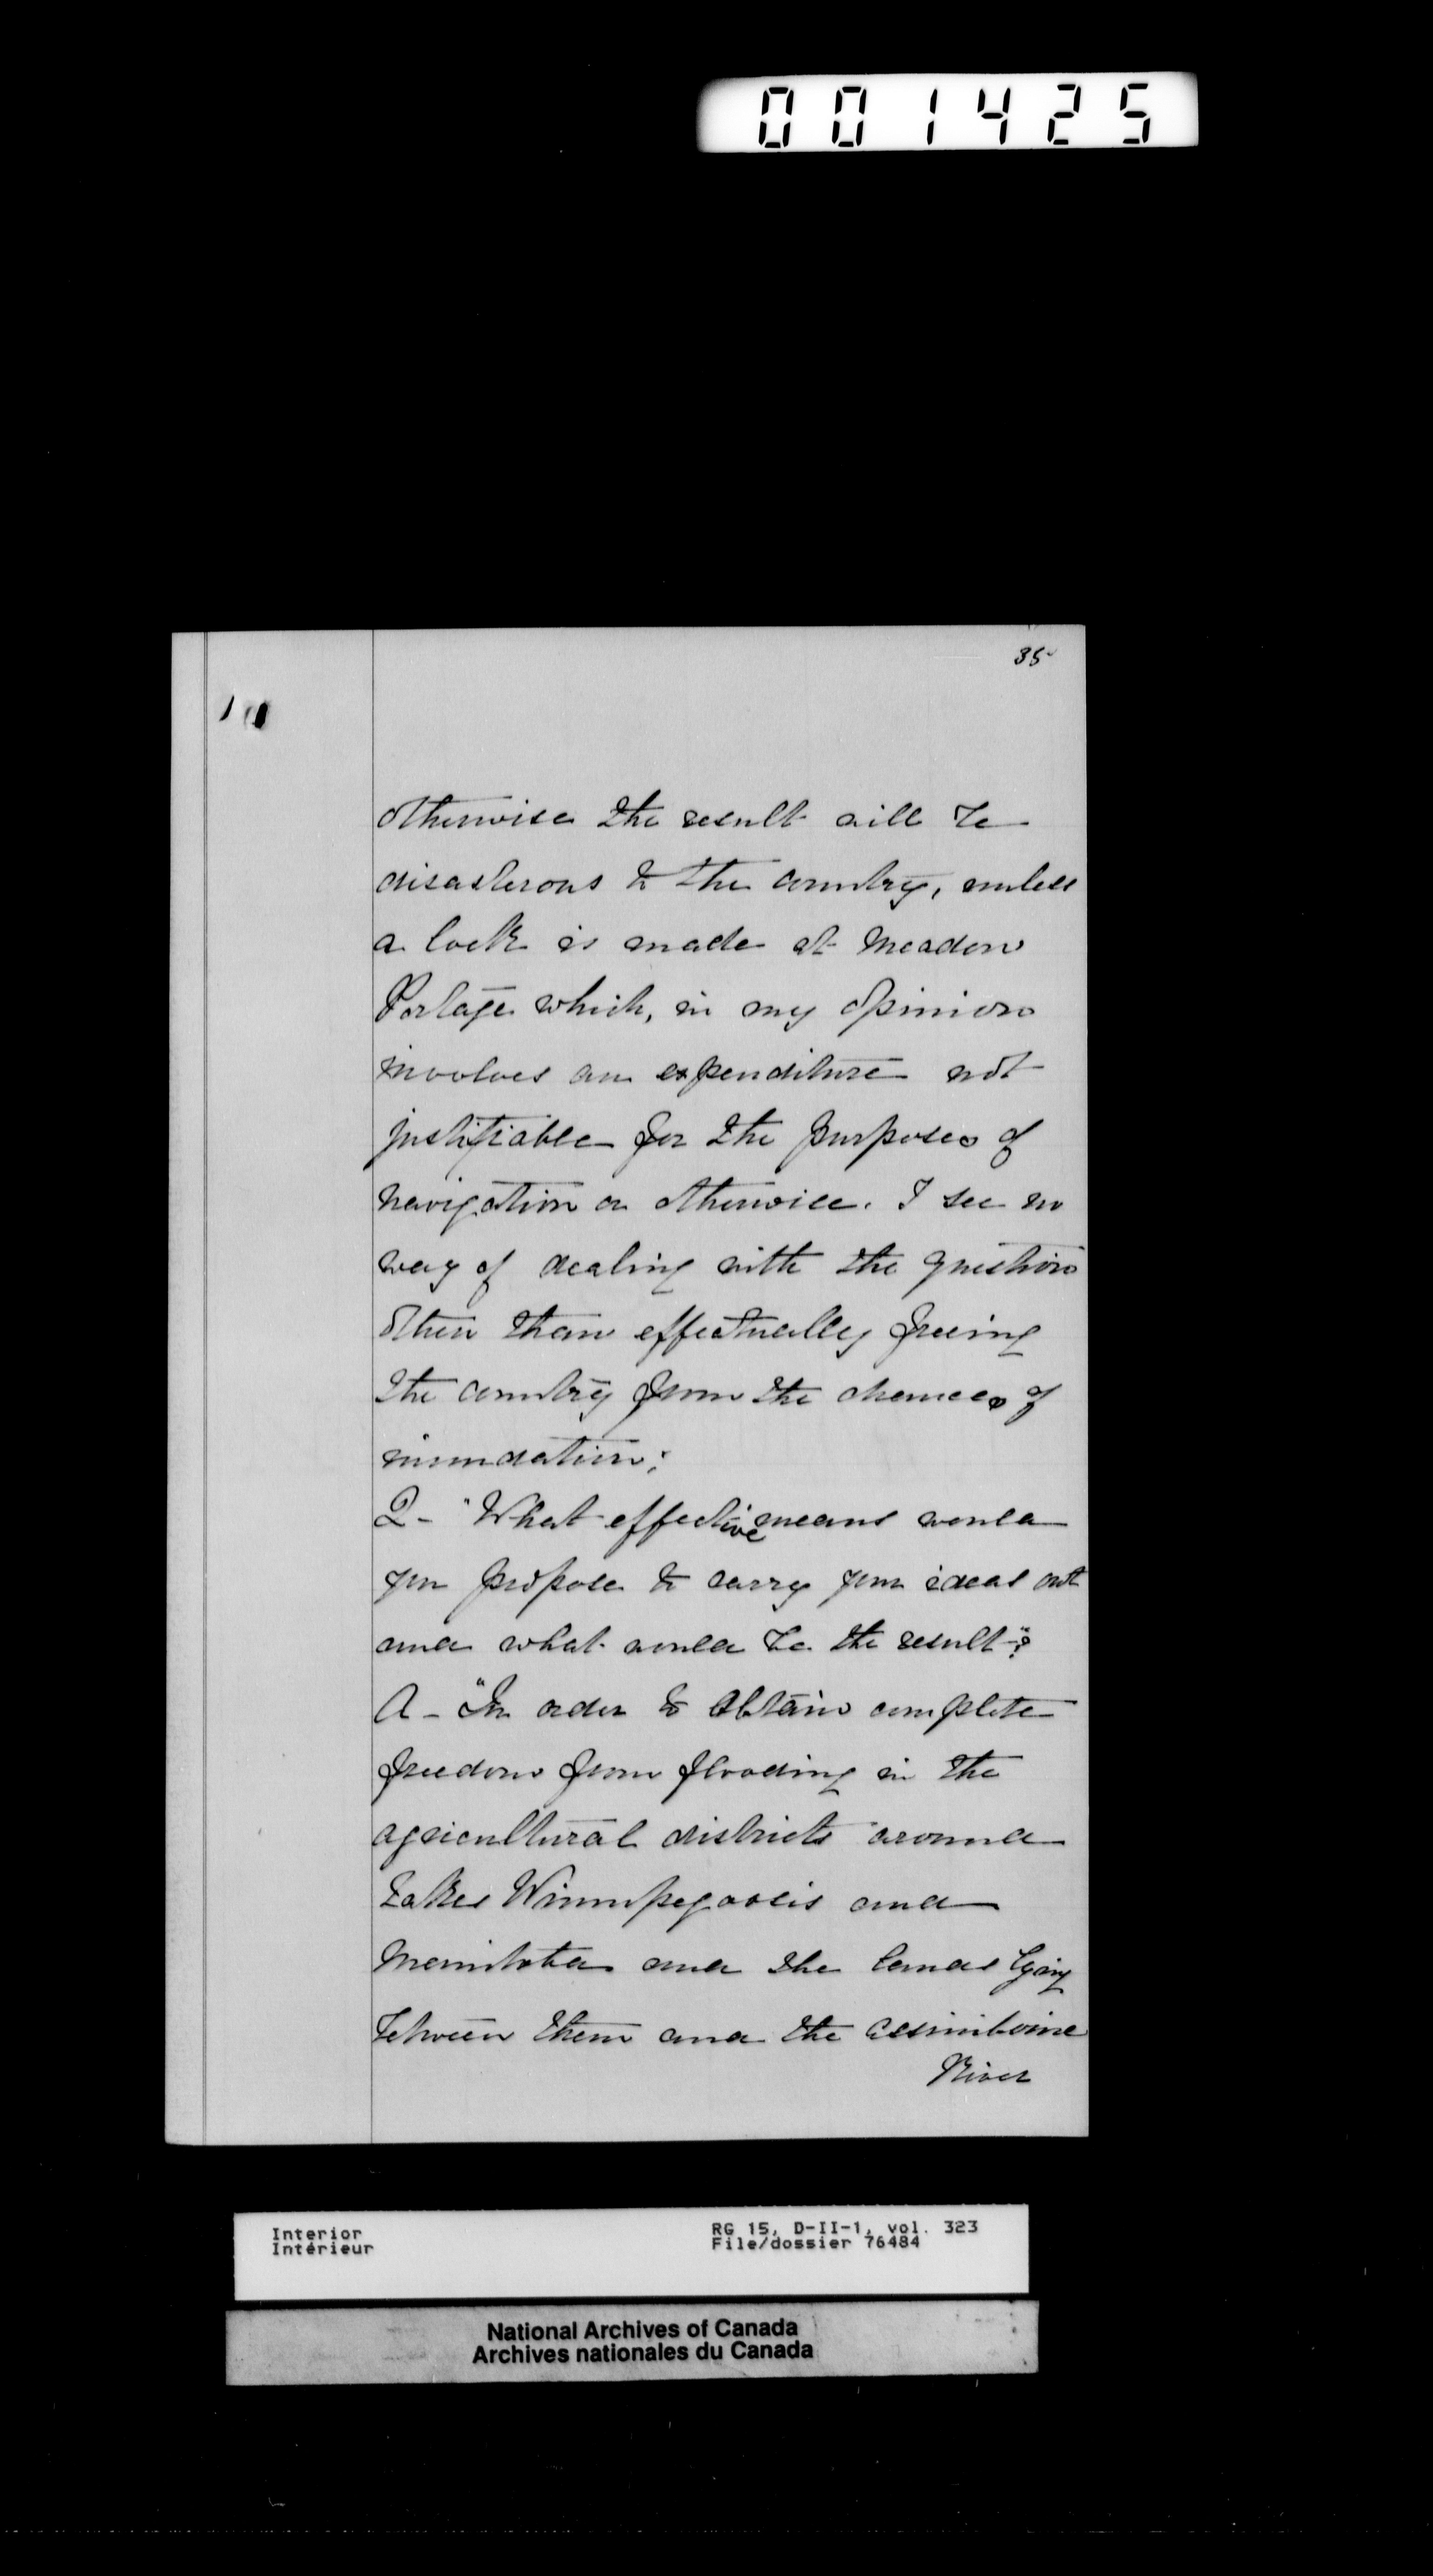 001425
35
otherwise the result will be
disasterous to the country, unless
a lock is made at Meadow
Portage which, in my opinion
involves an expenditure not
justifiable for the purposes of
navigation or otherwise. I see no
way of dealing with the question
other than effectually freeing
the country from the chances of
inundation:
Q - "What effective means would
you propose to carry your ideas out
and what would be the result"?
A - "In order to obtain complete
freedom from flooding in the
agricultural districts around
Lakes Winnipegoosis and
Manitoba and the lands lying
between them and the Assiniboine
River
Interior RG 15, D-II-1, vol. 323
Intérieur File/dossier 76484
National Archives of Canada
Archives nationales du Canada